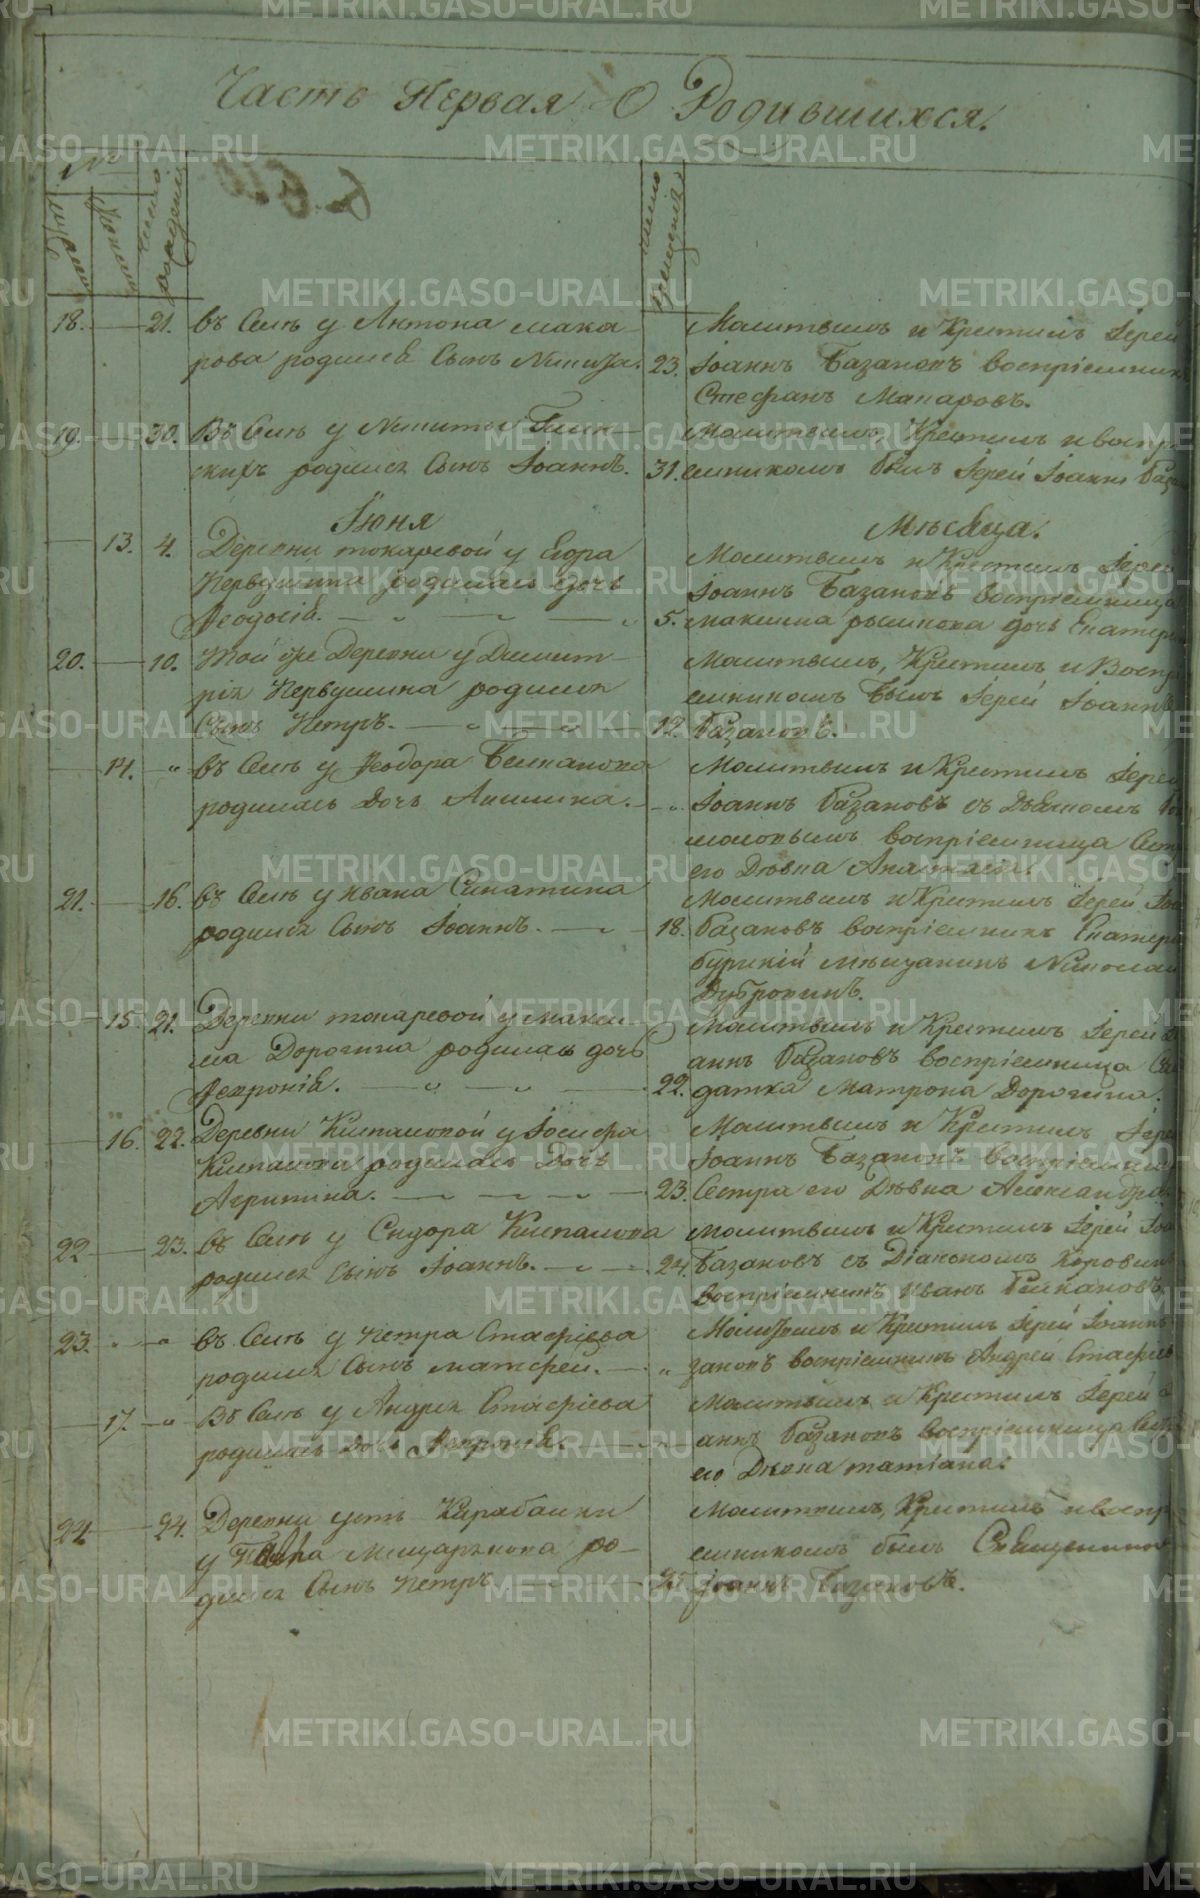 Часть Первая О Родившихся.
№
число рождения
число крещения
18. 21. въ Селѣ у Антона Мака-
рова родился Сынъ Никита. 23.
Молитвилъ и Крестилъ Іерей
Іоаннъ Базановъ воспріемникъ
Стефанъ Макаровъ.
19. 30. Въ Селѣ у Никиты
скихъ родился Сынъ Іоаннъ. 31.
Молитвилъ, Крестилъ и воспрі
емникомъ былъ Іерей Іоаннъ База
Іюня Мѣсяца.
13. 4. Деревни токаревой у Егора
Первушина родилась дочь
Ѳеодосія. 5.
Молитвилъ и Крестилъ Іерей
Іоаннъ Базановъ воспріемница
Максима дочь Екатери
20. 10. Той же Деревни у Димит-
рія Первушина родился
Сынъ Петръ. 12.
Молитвилъ, Крестилъ и Воспрі
емникомъ былъ Іерей Іоаннъ
Базановъ.
14. " въ Селѣ у Ѳеодора
родилась Дочь Акилина. "
Молитвилъ и Крестилъ Іерей
Іоаннъ Базановъ съ Дьячкомъ
воспріемница Сест
его Дѣвка Анастасія.
21. 16. въ Селѣ у Ивана
родился Сынъ Іоаннъ. 18.
Молитвилъ и Крестилъ Іерей Іоа
Базановъ воспріемникъ Екатери
бургскій мѣщанинъ Николай
Дубровинъ.
15. 21. Деревни токаревой у Макси-
ма Дорогина родилась дочь
Ѳевронія. 22.
Молитвилъ и Крестилъ Іерей Іо
аннъ Базановъ воспріемница Сол
датка Матрона Дорогина.
16. 22. Деревни Колпаковой у Іосифа
Колпакова родилась Дочь
Агрипина. 23.
Молитвилъ и Крестилъ Іерей
Іоаннъ Базановъ воспріемница
Сестра его Дѣвка Александра
22. 23. въ Селѣ у Сидора Колпакова
родился Сынъ Іоаннъ. 24.
Молитвилъ и Крестилъ Іерей Іоа
Базановъ съ Діакономъ
воспріемникъ Иванъ
23. " въ Селѣ у Петра Стафіева
родился Сынъ Матфей. "
Молитвилъ и Крестилъ Іерей Іоаннъ
зановъ воспріемникъ Андрей Стафіев
17. " Въ Селѣ у Андрея Стафіева
родилась Дочь Ѳевронія. "
Молитвилъ и Крестилъ Іерей Іо
аннъ Базановъ воспріемница Сест
его Дѣвка татіана.
24. 24. Деревни усть Карабашки
у Мещерякова ро-
дился Сынъ Петръ 25.
Молитвилъ, Крестилъ и воспрі
емникомъ былъ Священник
Іоаннъ Базановъ.
METRIKI.GASO-URAL.RU